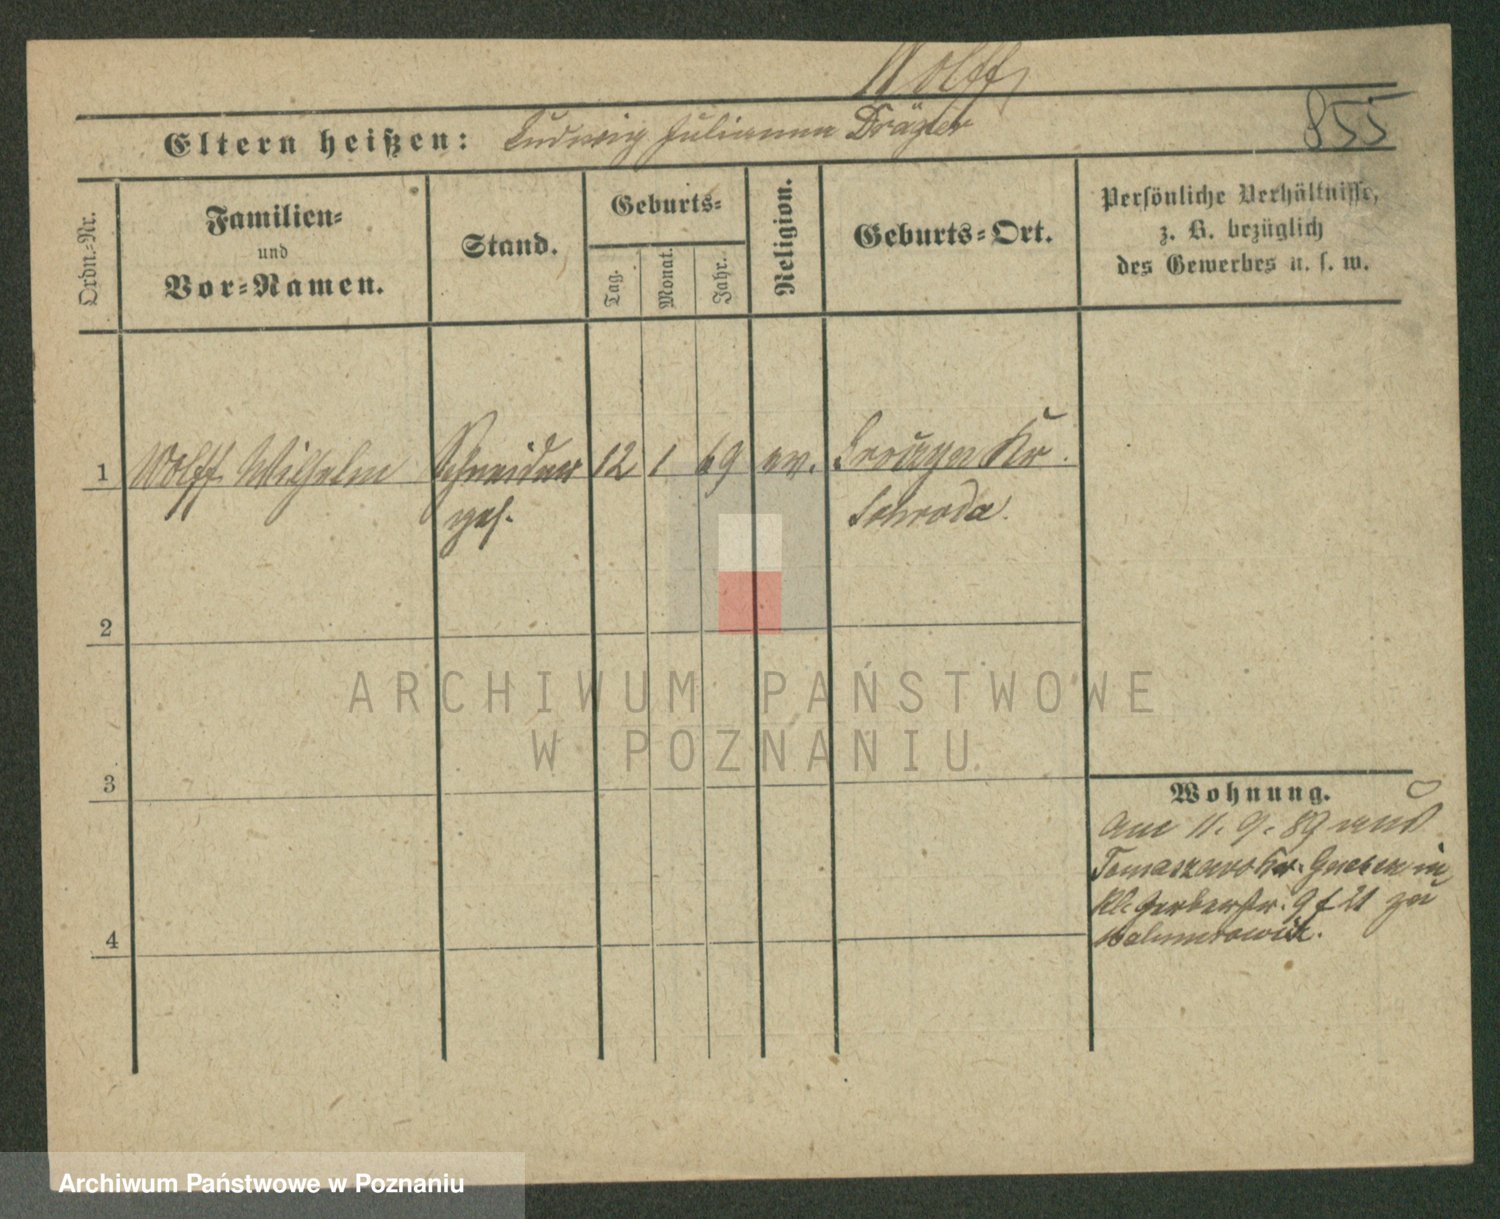 Wolff
855
Eltern heißen: Ludwig Julianna Dräger
Ordn.-Nr.
Familien-
und
Vor-Namen.
Stand.
Geburts-
Tag.
Monat.
Jahr.
Religion.
Geburts-Ort.
Persönliche Verhältnisse,
z. B. bezüglich
des Gewerbes u. s. w.
1 Wolff Wilhelm Schneider 12 1 69 ev. Kr.
ges. Schroda.
2
ARCHIWUM PAŃSTWOWE
W POZNANIU
3
Wohnung.
am 11. 9. 89 aus
Kr. Gnesen in
Kl. Gerberstr. 9 f 21 zu
4
Archiwum Państwowe w Poznaniu